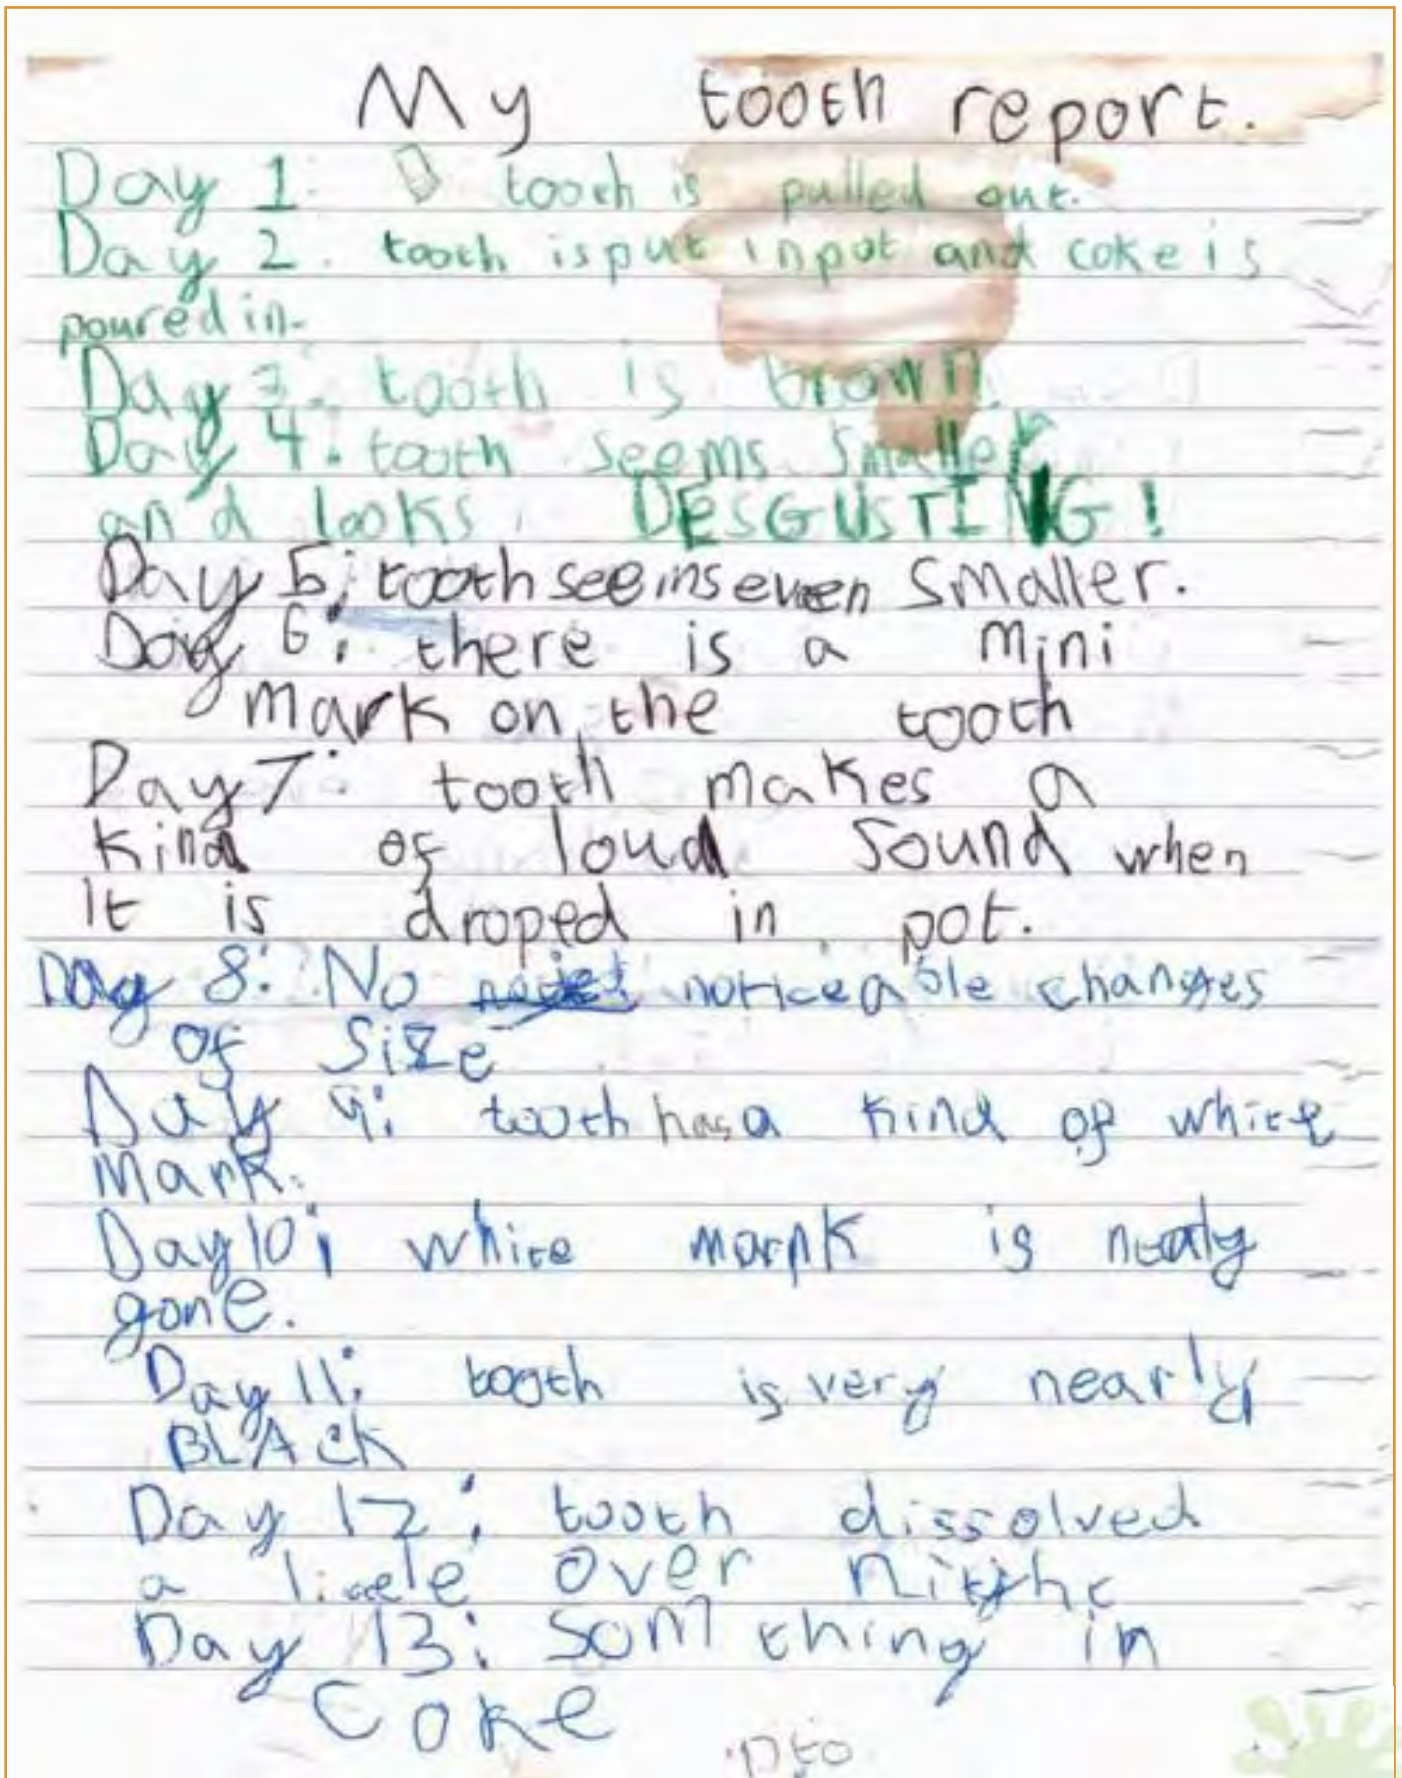 My tooth report.
Day 1: tooth is pulled out.
Day 2. tooth is put in pot and coke is
poured in.
Day 3: tooth is brown
Day 4: tooth seems smaller
and looks DESGUSTING!
Day 5: tooth seems even smaller.
Day 6: there is a mini
mark on the tooth
Day 7: tooth makes a
kind of loud sound when
it is droped in pot.
Day 8: No noticeable changes
of size
Day 9: tooth has a kind of white
mark.
Day 10: white mark is nealy
gone.
Day 11: tooth is very nearly
BLACK
Day 12: tooth dissolved
a little over
Day 13: som thing in
coke
pto